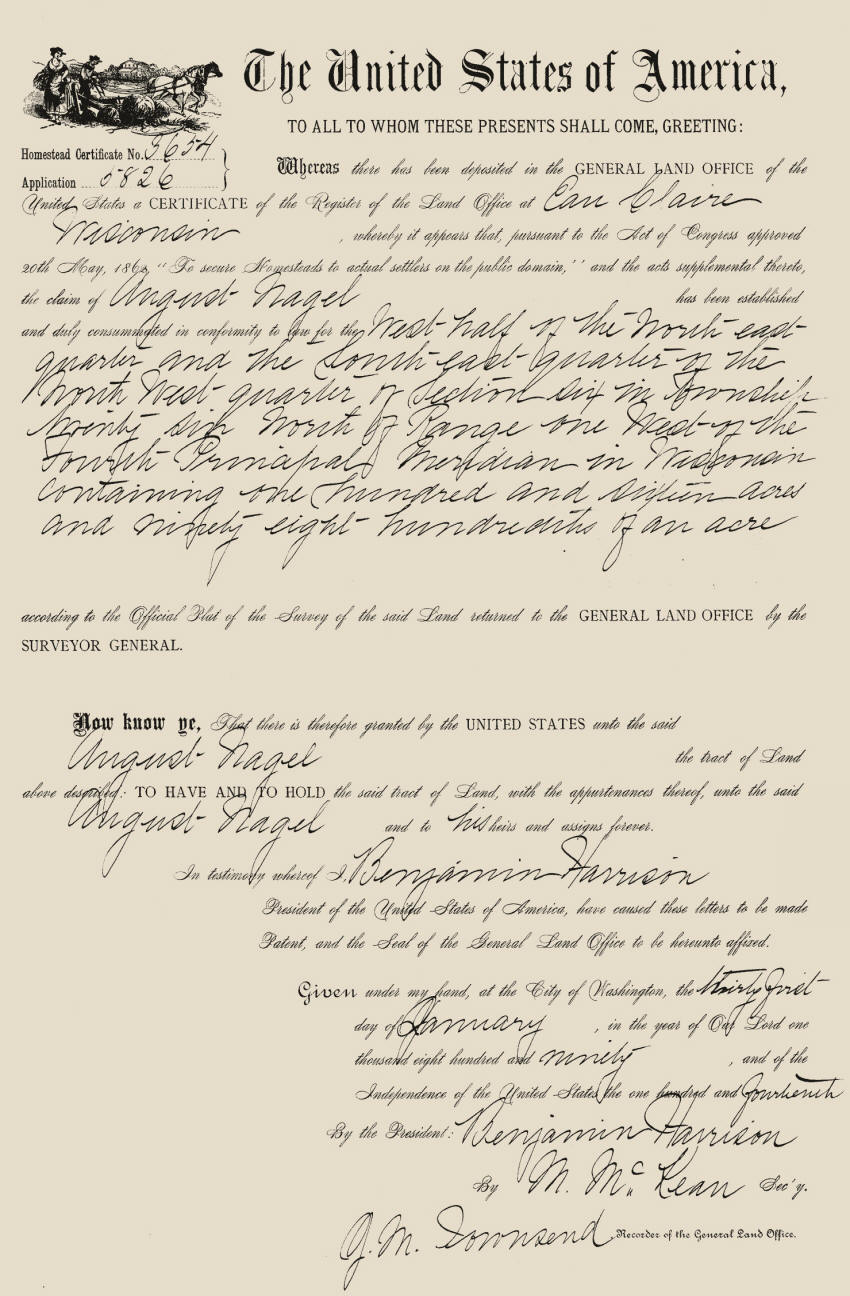 The United States of America,
TO ALL TO WHOM THESE PRESENTS SHALL COME, GREETING:
Homestead Certificate No. 3654
Application 5826
Whereas there has been deposited in the GENERAL LAND OFFICE of the
United States a CERTIFICATE of the Register of the Land Office at Eau Claire
Wisconsin, whereby it appears that, pursuant to the Act of Congress approved
20th May, 1862, "To secure Homesteads to actual settlers on the public domain," and the acts supplemental thereto,
the claim of August Nagel has been established
and duly consummated in conformity to law for the West half of the North east
quarter and the South east quarter of the
North West quarter of Section six in township
twenty six North of Range one West of the
Fourth Principal Meridian in Wisconsin
containing one hundred and sixteen acres
and ninety eight hundredths of an acre
according to the Official Plat of the Survey of the said Land returned to the GENERAL LAND OFFICE by the
SURVEYOR GENERAL.
Now know ye, That there is therefore granted by the UNITED STATES unto the said
August Nagel the tract of Land
above described: TO HAVE AND TO HOLD the said tract of Land, with the appurtenances thereof, unto the said
August Nagel and to his heirs and assigns forever.
In testimony whereof I, Benjamin Harrison
President of the United States of America, have caused these letters to be made
Patent, and the Seal of the General Land Office to be hereunto affixed.
Given under my hand, at the City of Washington, the thirty first
day of January, in the year of Our Lord one
thousand eight hundred and ninety, and of the
Independence of the United States the one hundred and fourteenth
By the President: Benjamin Harrison
By M. McKean Sec'y.
J. M. Townsend, Recorder of the General Land Office.